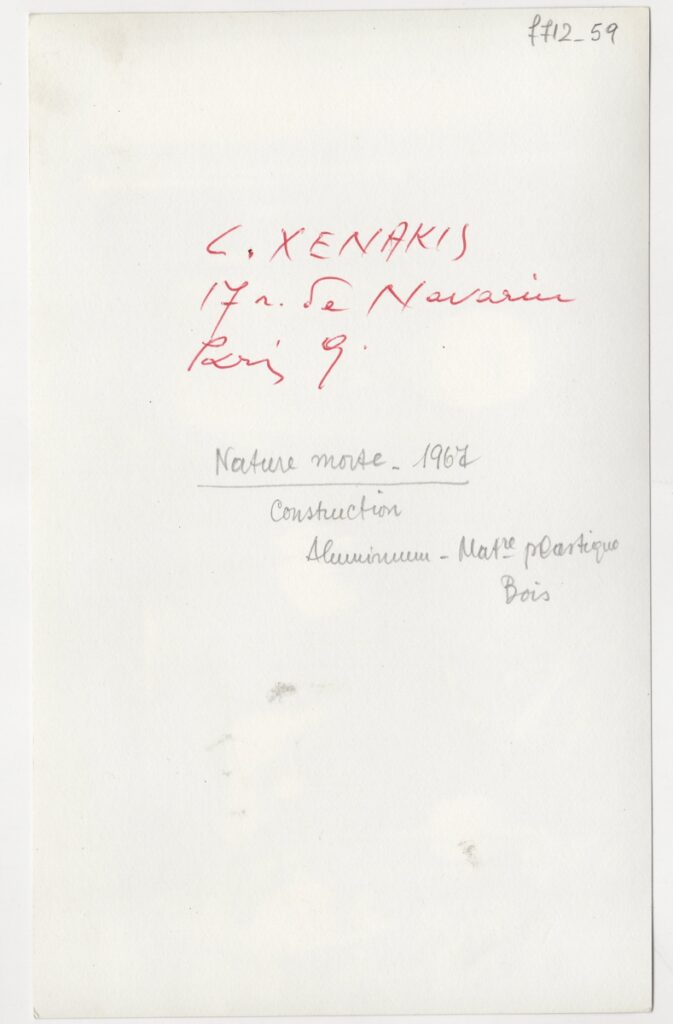 7712_59
C. XENAKIS
17 r. de Navarin
Paris 9.
Nature morte_ 1967
Construction
Aluminium - Matre plastique
Bois